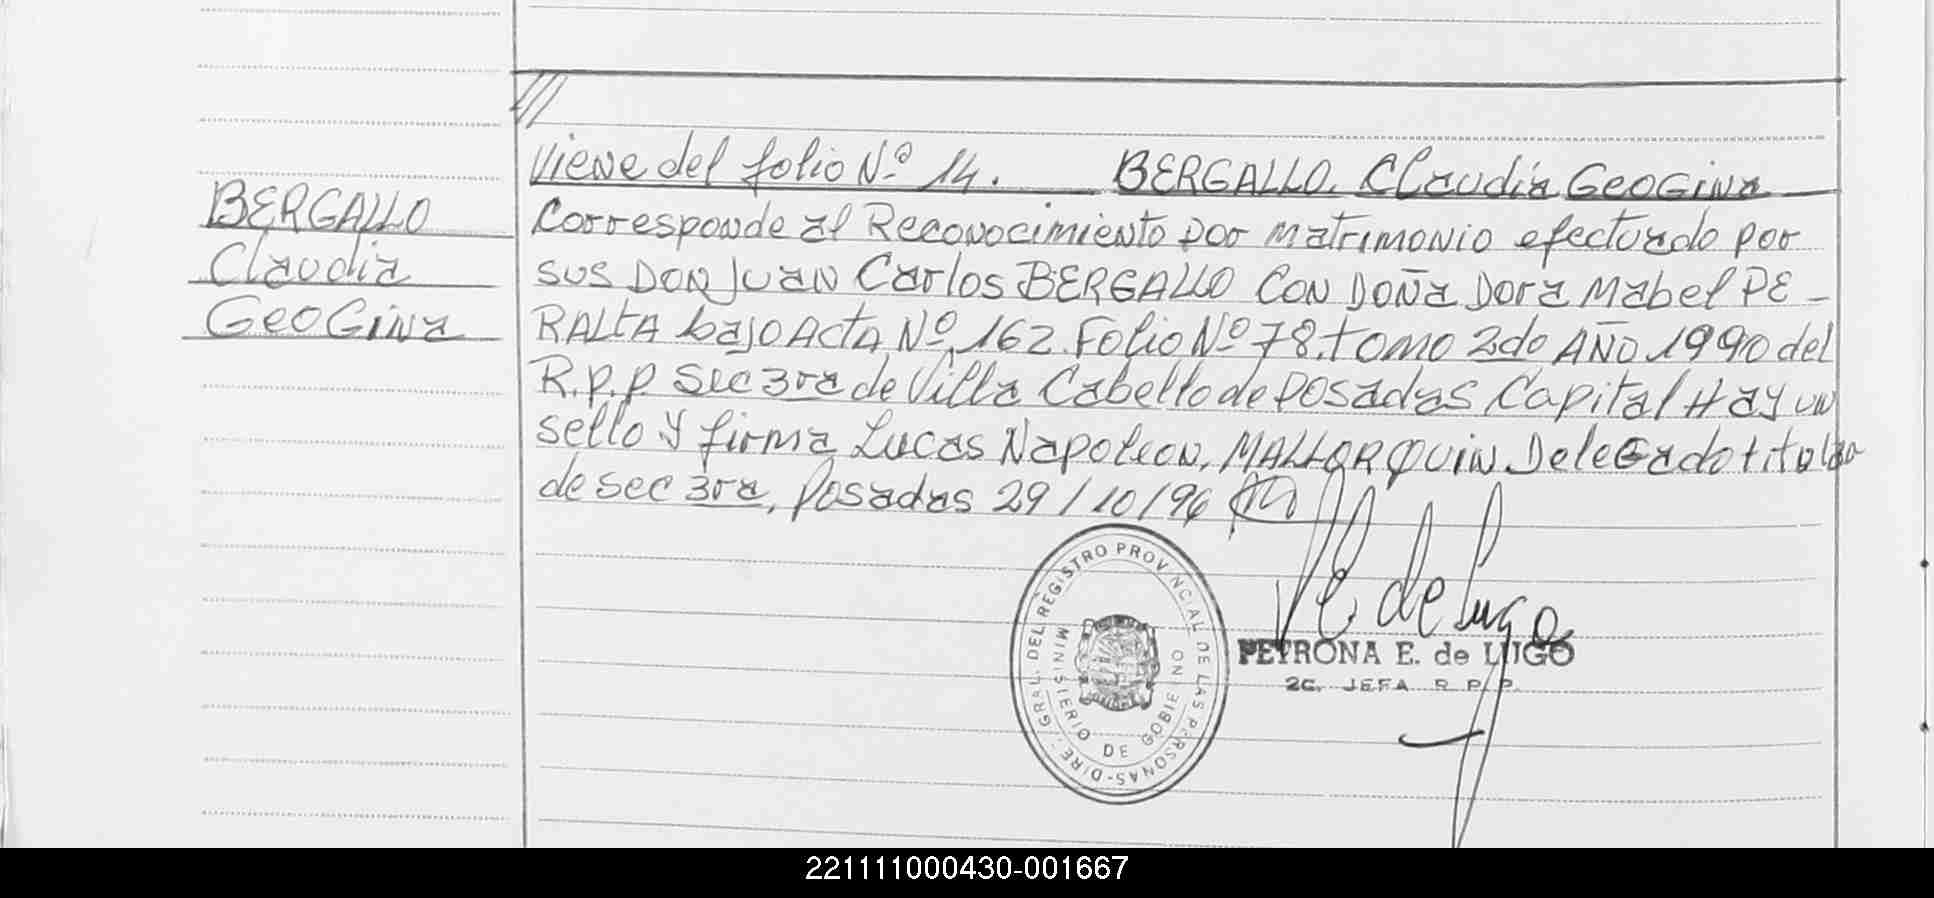 ///
Viene del folio Nº 14. BERGALLO, Claudia GeoGina
BERGALLO
Claudia
GeoGina
Corresponde al Reconocimiento por matrimonio efectuado por
sus DON JUAN Carlos BERGALLO CON DOÑA Dora Mabel PE-
RALTA bajo ACTA Nº 162. Folio Nº 78. tomo 2do AÑO 1990 del
R.P.P. Sec 3ra de Villa Cabello de Posadas Capital Hay un
sello y firma Lucas Napoleon, MALLORQUIN Delegado titular
de sec 3ra, Posadas 29/10/96
E. de Lugo
PETRONA E. de LUGO
2C. JEFA R. P. P.
DIRE. GRAL. DEL REGISTRO PROVINCIAL DE LAS PERSONAS-
MINISTERIO DE GOBIERNO
221111000430-001667